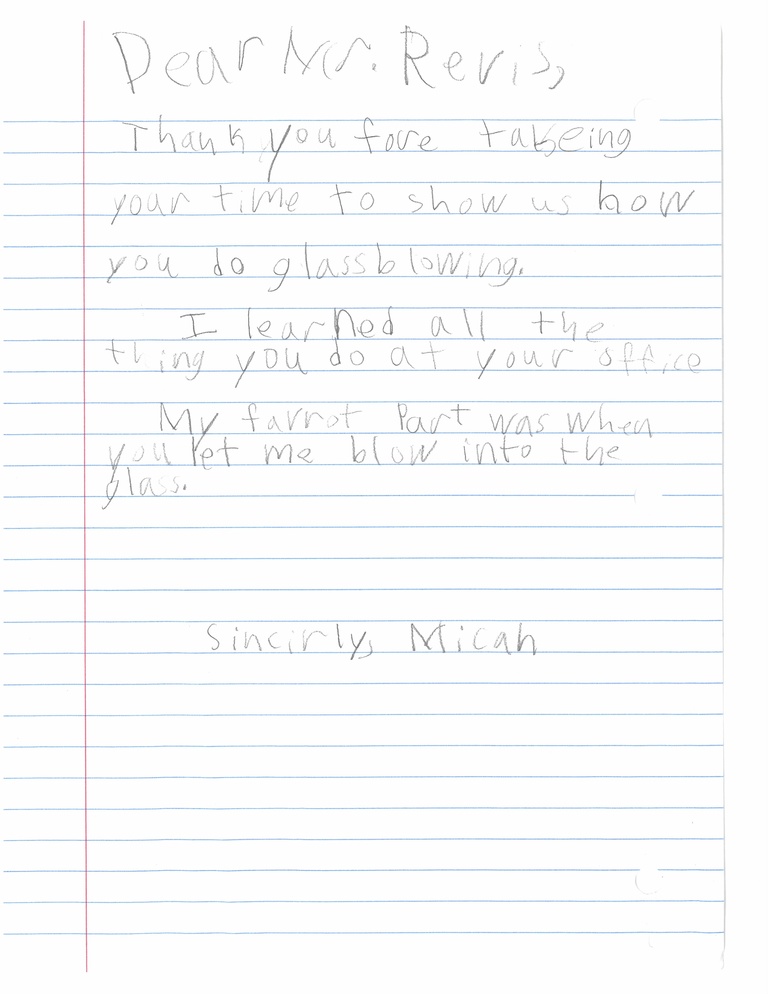 Dear Mr. Revis,
Thank you fore takeing
your time to show us how
you do glassblowing.
I learned all the
thing you do at your office
My farrot Part was when
you let me blow into the
glass.
Sincirly, Micah